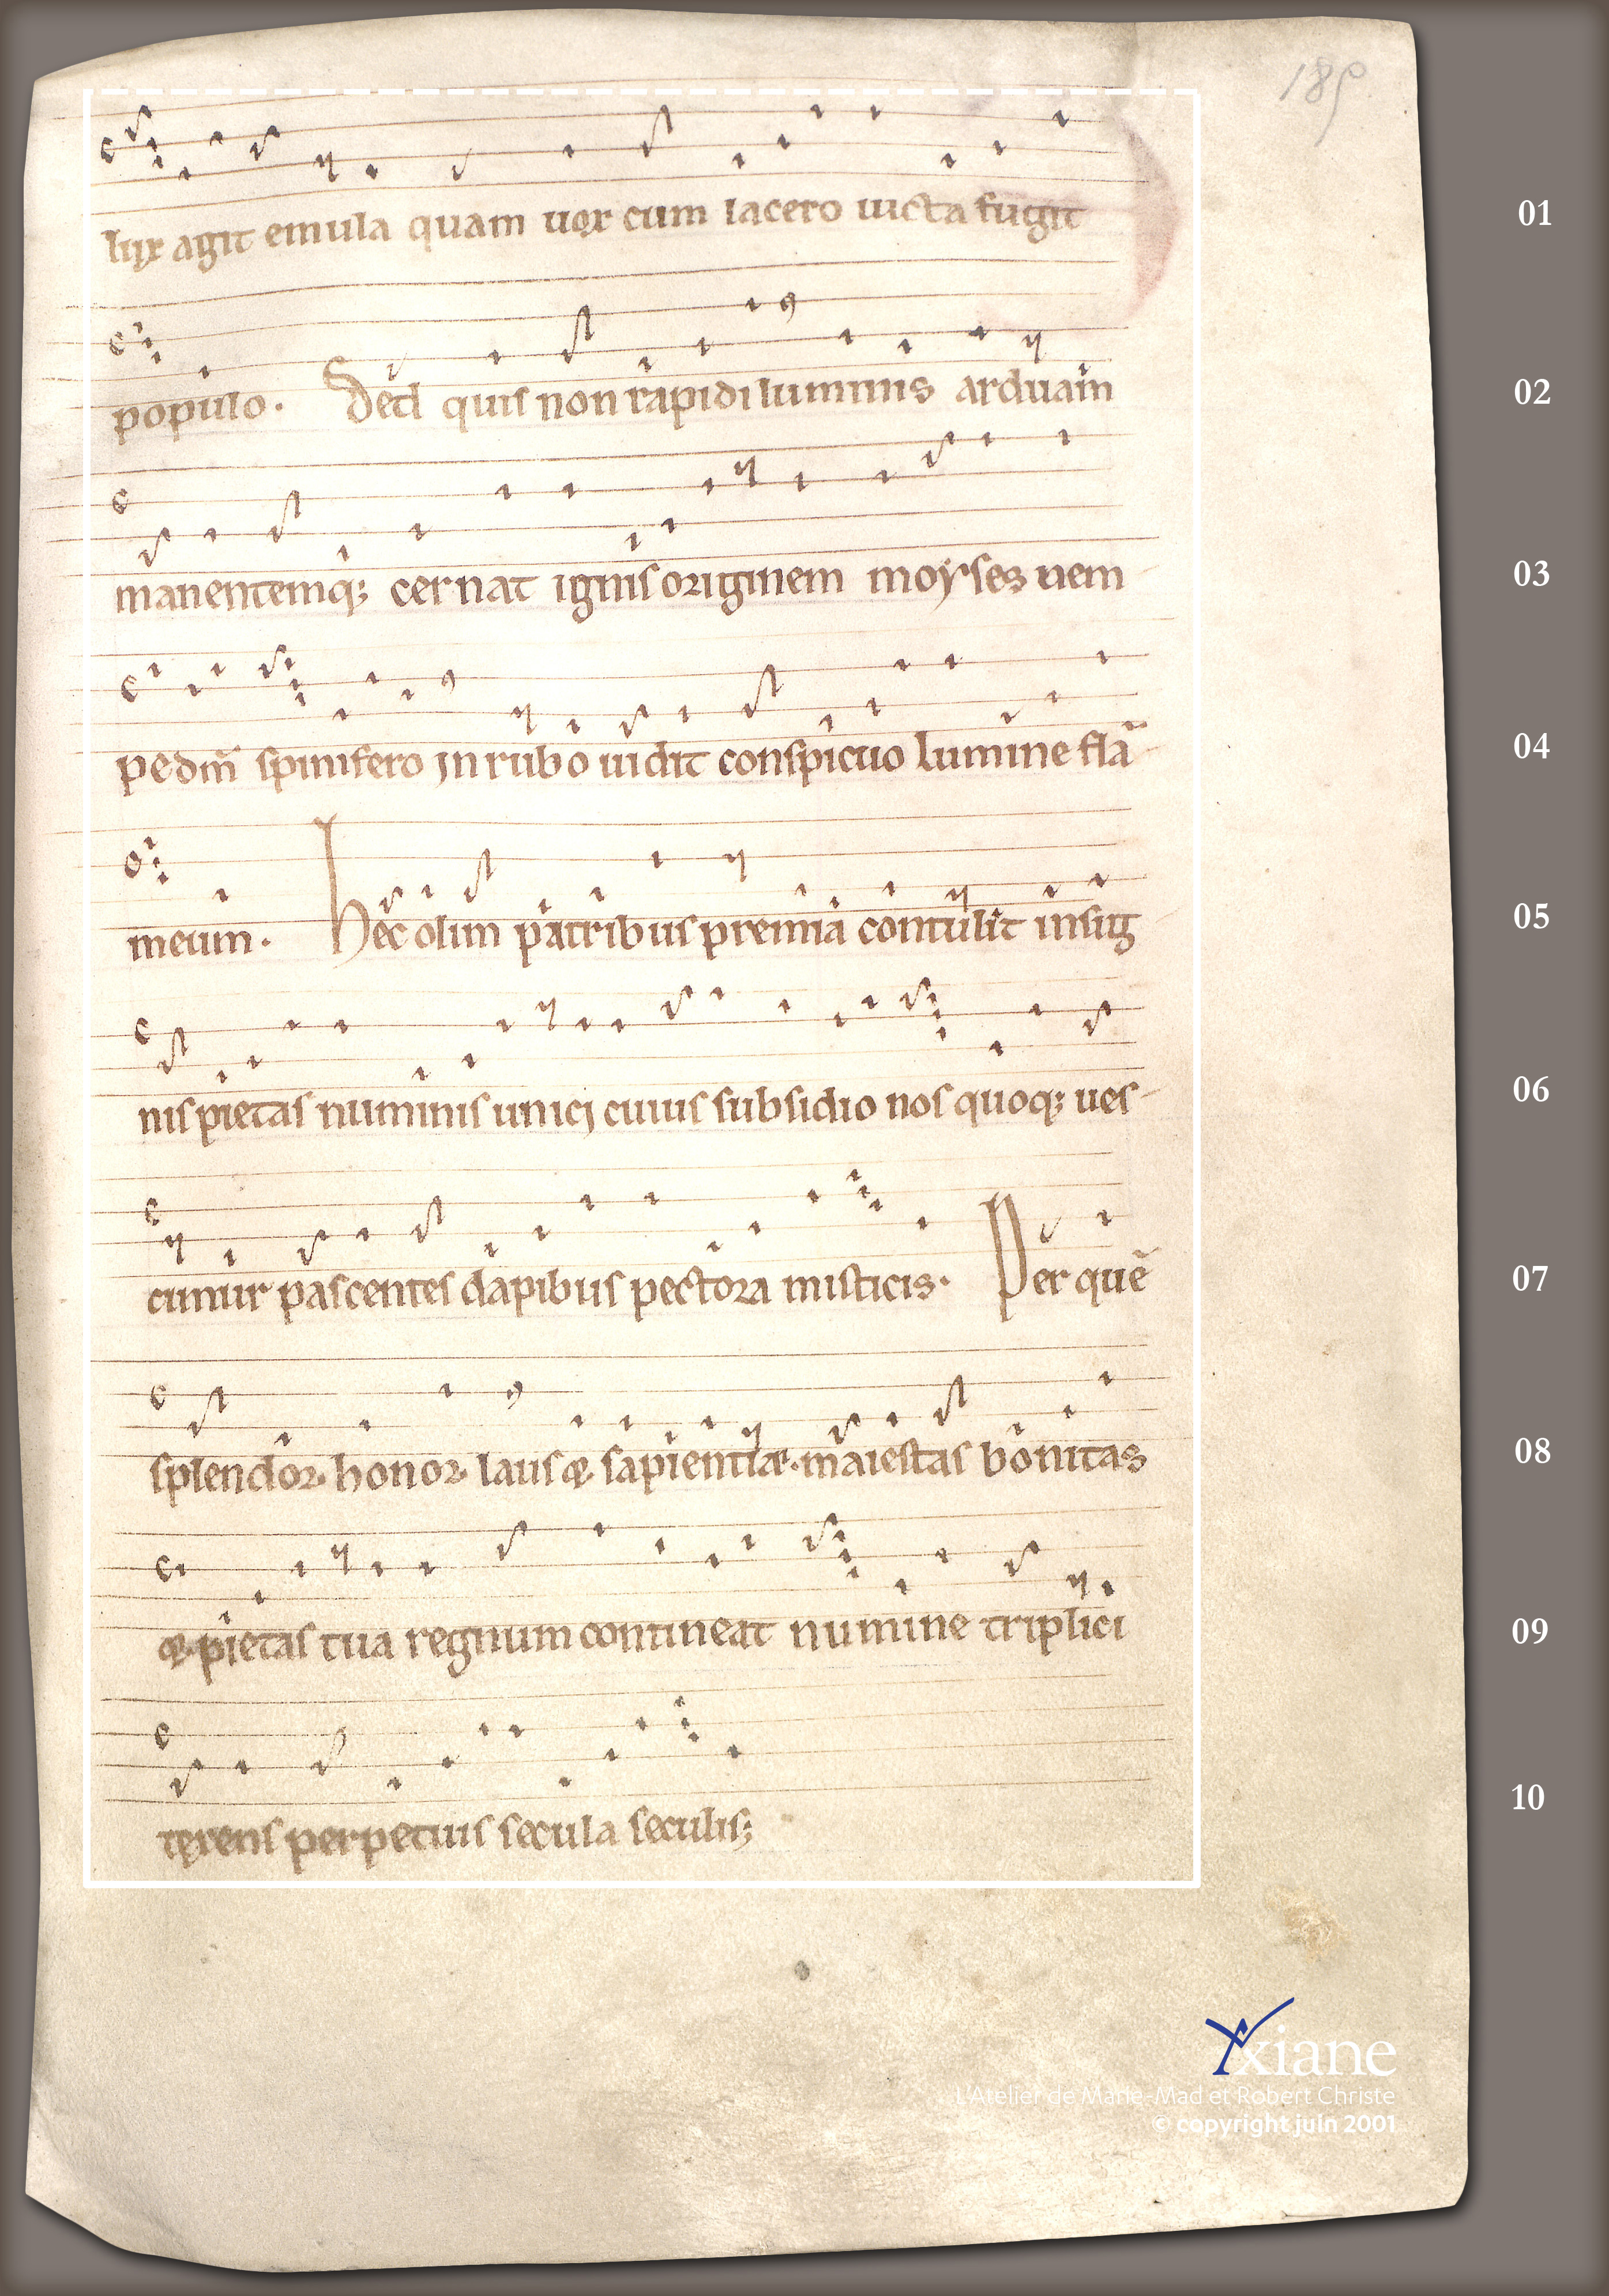 189
lux agit emula quam uox cum lacero uicta fugit
01
populo. Sed quis non rapidi luminis arduam
02
manentemq; cernat ignis originem moyses nem
03
pe dm̄ spinifero in rubo uidit conspicuo lumine flā
04
meum. Hec olim patribus premia contulit insig
05
nis pietas numinis unici cuius subsidio nos quoq; ues-
06
cimur pascentes dapibus pectora misticis. Per quē
07
splendor. honor. laus &. sapientiæ. maiestas bonitas
08
&. pietas tua regnum contineat numine triplici
09
texens perpetuis secula seculis;
10
Yxiane
L'Atelier de Marie-Mad et Robert Christe
© copyright juin 2001